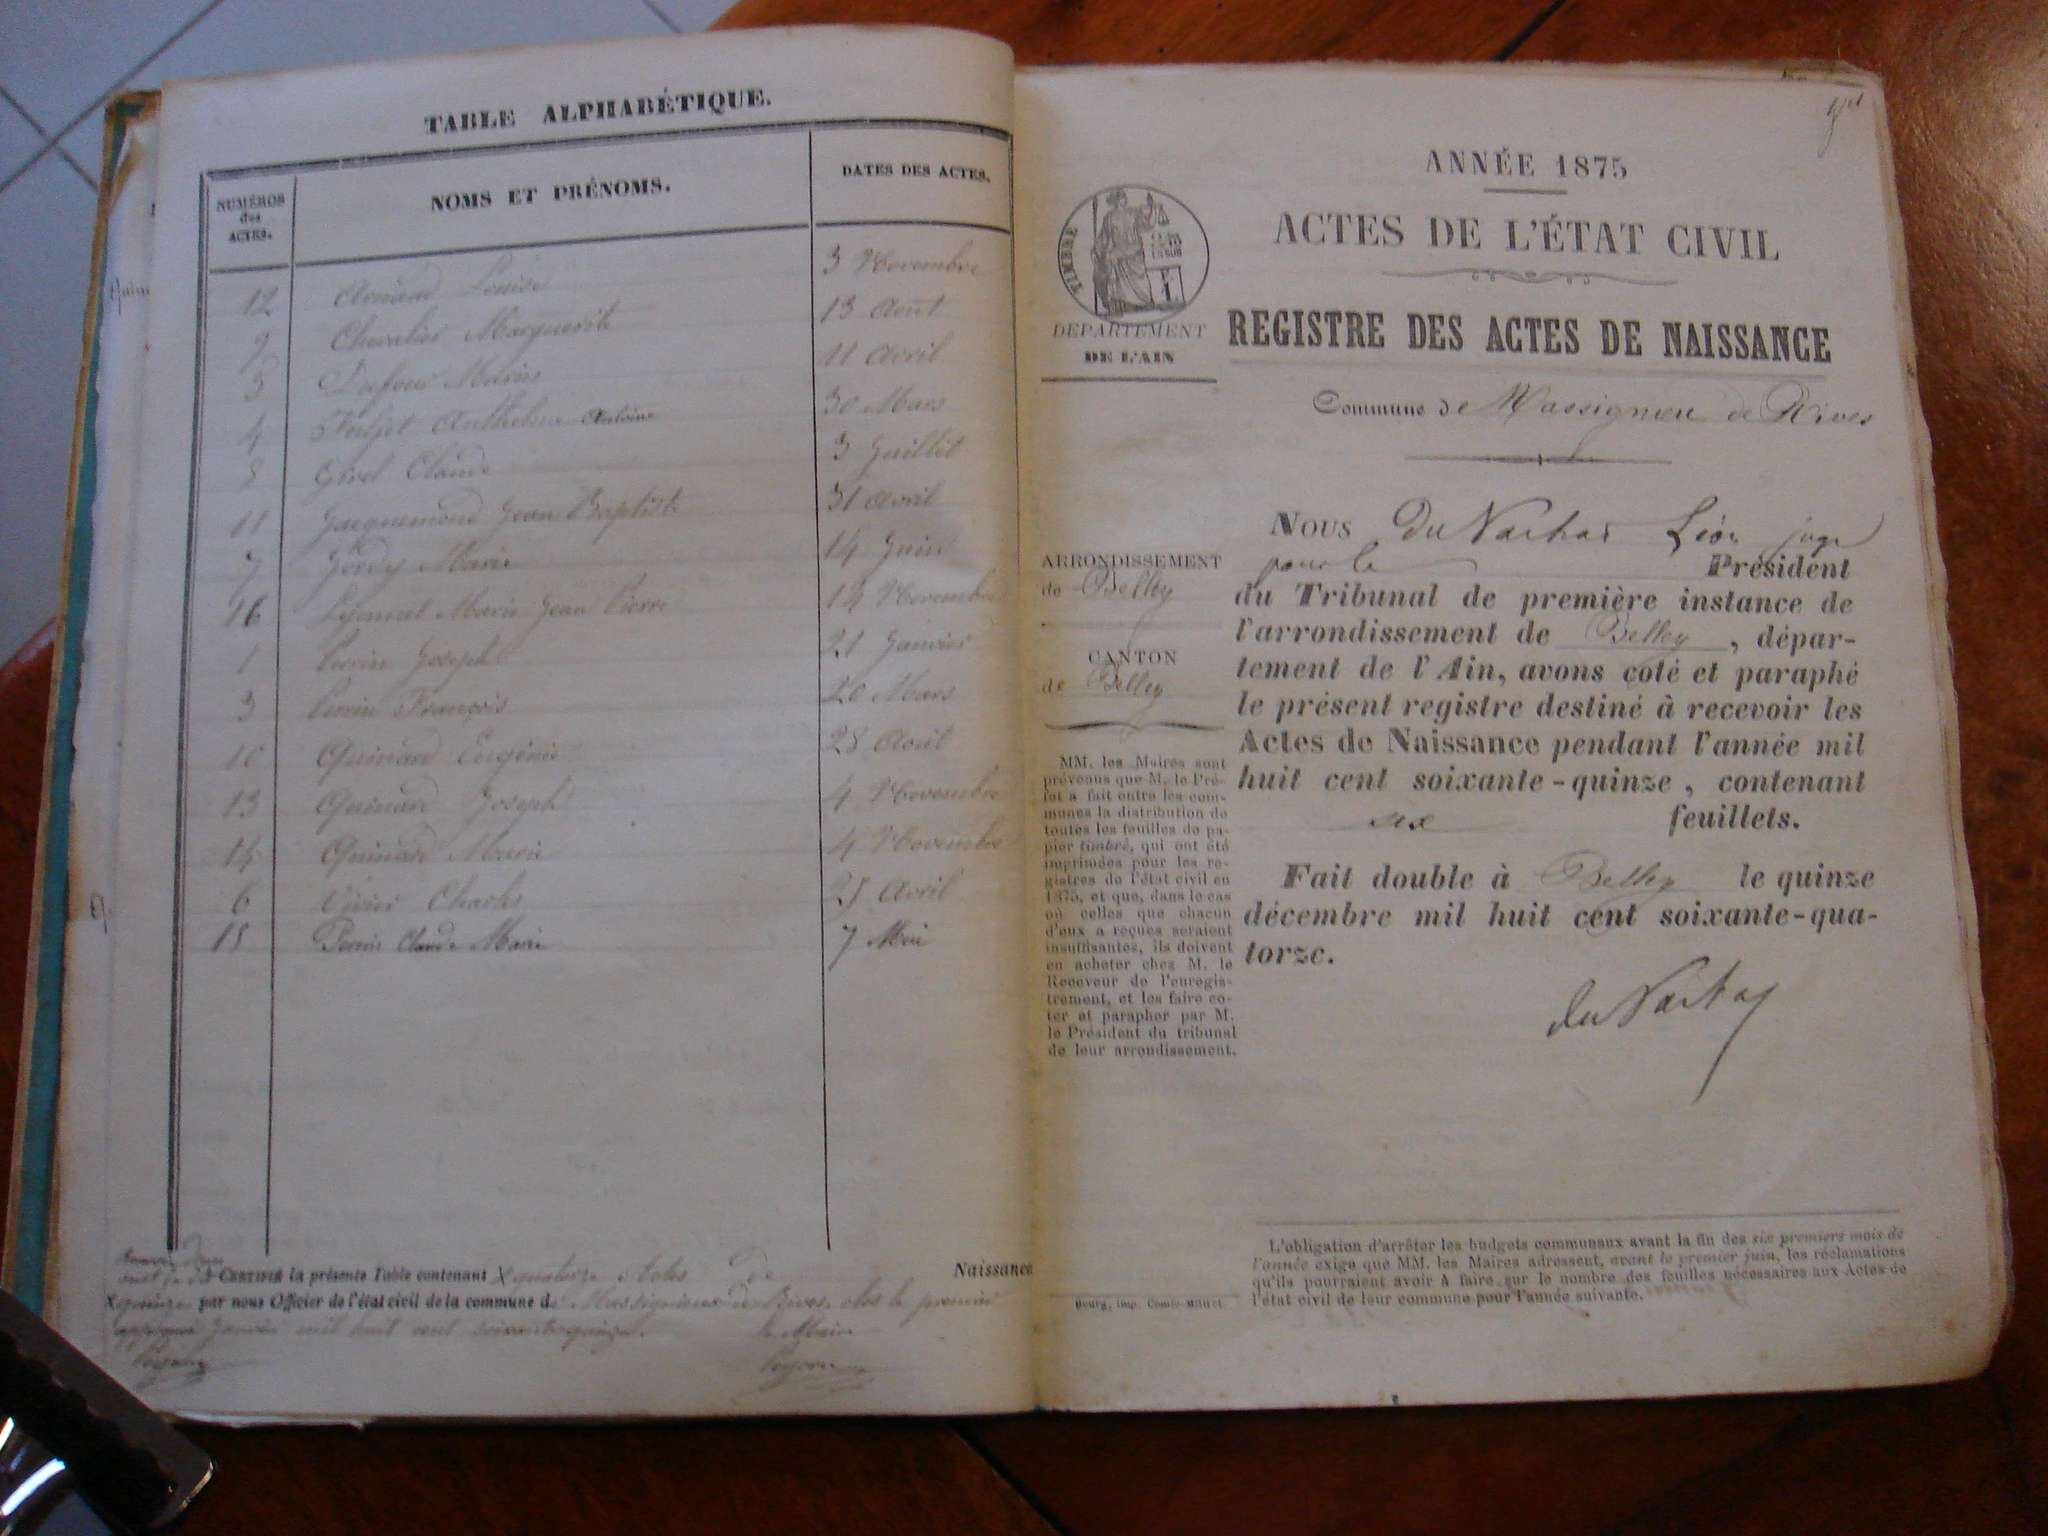 TABLE ALPHABÉTIQUE.
NUMÉROS des ACTES. NOMS ET PRÉNOMS. DATES DES ACTES.
12 Louise 3 Novembre
9 Chevalier Marguerite 13 Août
5 Dufour Marius 11 Avril
4 Anthelme Antoine 30 Mars
8 Claude 3 Juillet
11 Jacquemond Jean Baptiste 31
7 Marie 14 Juin
16 Marie Jean Pierre 14 Novembre
1 Perrin Joseph 21 Janvier
3 Perrin François 20 Mars
10 Quinard Eugénie 28 Août
13 Quinard Joseph 4 Novembre
14 Quinard Marie 4 Novembre
6 Vivier Charles 25 Avril
15 Perrin Claude Marie 7 Mai
CERTIFIÉ la présente Table contenant quatorze Actes de Naissance
par nous Officier de l'état civil de la commune de Massignieu de Rives, clos le premier
Janvier mil huit cent soixante quinze.
le Maire
ANNÉE 1875
ACTES DE L'ÉTAT CIVIL
TIMBRE
DÉPARTEMENT
DE L'AIN
REGISTRE DES ACTES DE NAISSANCE
Commune de Massignieu de Rives
ARRONDISSEMENT
de Belley
CANTON
de Belley
MM. les Maires sont
prévenus que M. le Pré-
fet a fait entre les com-
munes la distribution de
toutes les feuilles de pa-
pier timbré, qui ont été
imprimées pour les re-
gistres de l'état civil en
1875, et que, dans le cas
où celles que chacun
d'eux a reçues seraient
insuffisantes, ils doivent
en acheter chez M. le
Receveur de l'enregis-
trement, et les faire co-
ter et parapher par M.
le Président du tribunal
de leur arrondissement.
NOUS Du Nachas Léon juge
pour le Président
du Tribunal de première instance de
l'arrondissement de Belley, dépar-
tement de l'Ain, avons coté et paraphé
le présent registre destiné à recevoir les
Actes de Naissance pendant l'année mil
huit cent soixante-quinze, contenant
six feuillets.
Fait double à Belley le quinze
décembre mil huit cent soixante-qua-
torze.
L'obligation d'arrêter les budgets communaux avant la fin des six premiers mois de
l'année exige que MM. les Maires adressent, avant le premier juin, les réclamations
qu'ils pourraient avoir à faire sur le nombre des feuilles nécessaires aux Actes de
l'état civil de leur commune pour l'année suivante.
Bourg, imp. Comte-Milliet.